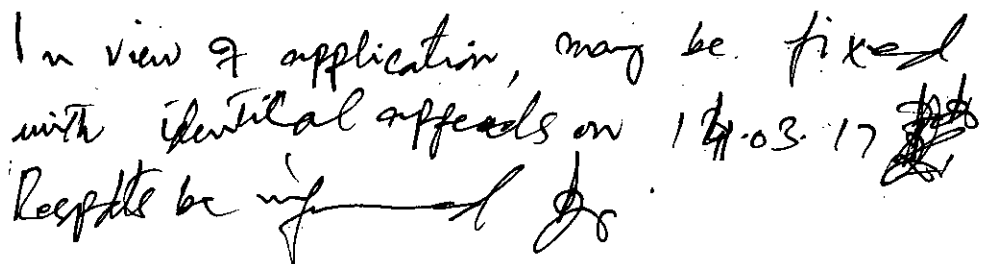 In view of application, may be fixed
with identical appeals on 14.03.17
Respdts be informed